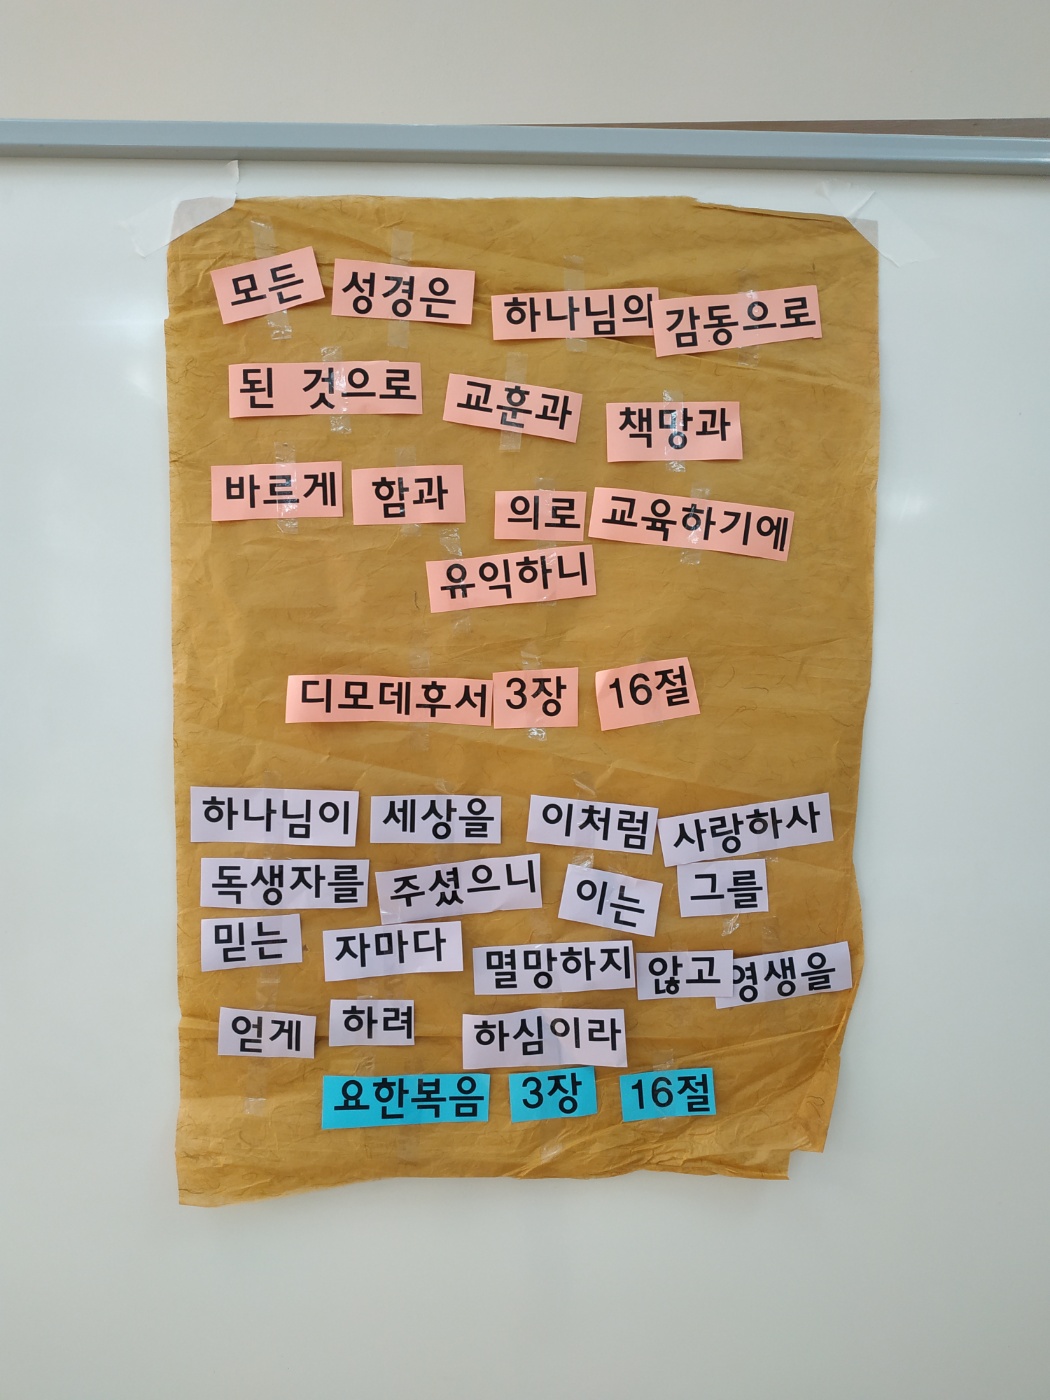 모든 성경은 하나님의 감동으로
된 것으로 교훈과 책망과
바르게 함과 의로 교육하기에
유익하니
디모데후서 3장 16절
하나님이 세상을 이처럼 사랑하사
독생자를 주셨으니 이는 그를
믿는 자마다 멸망하지 않고 영생을
얻게 하려 하심이라
요한복음 3장 16절